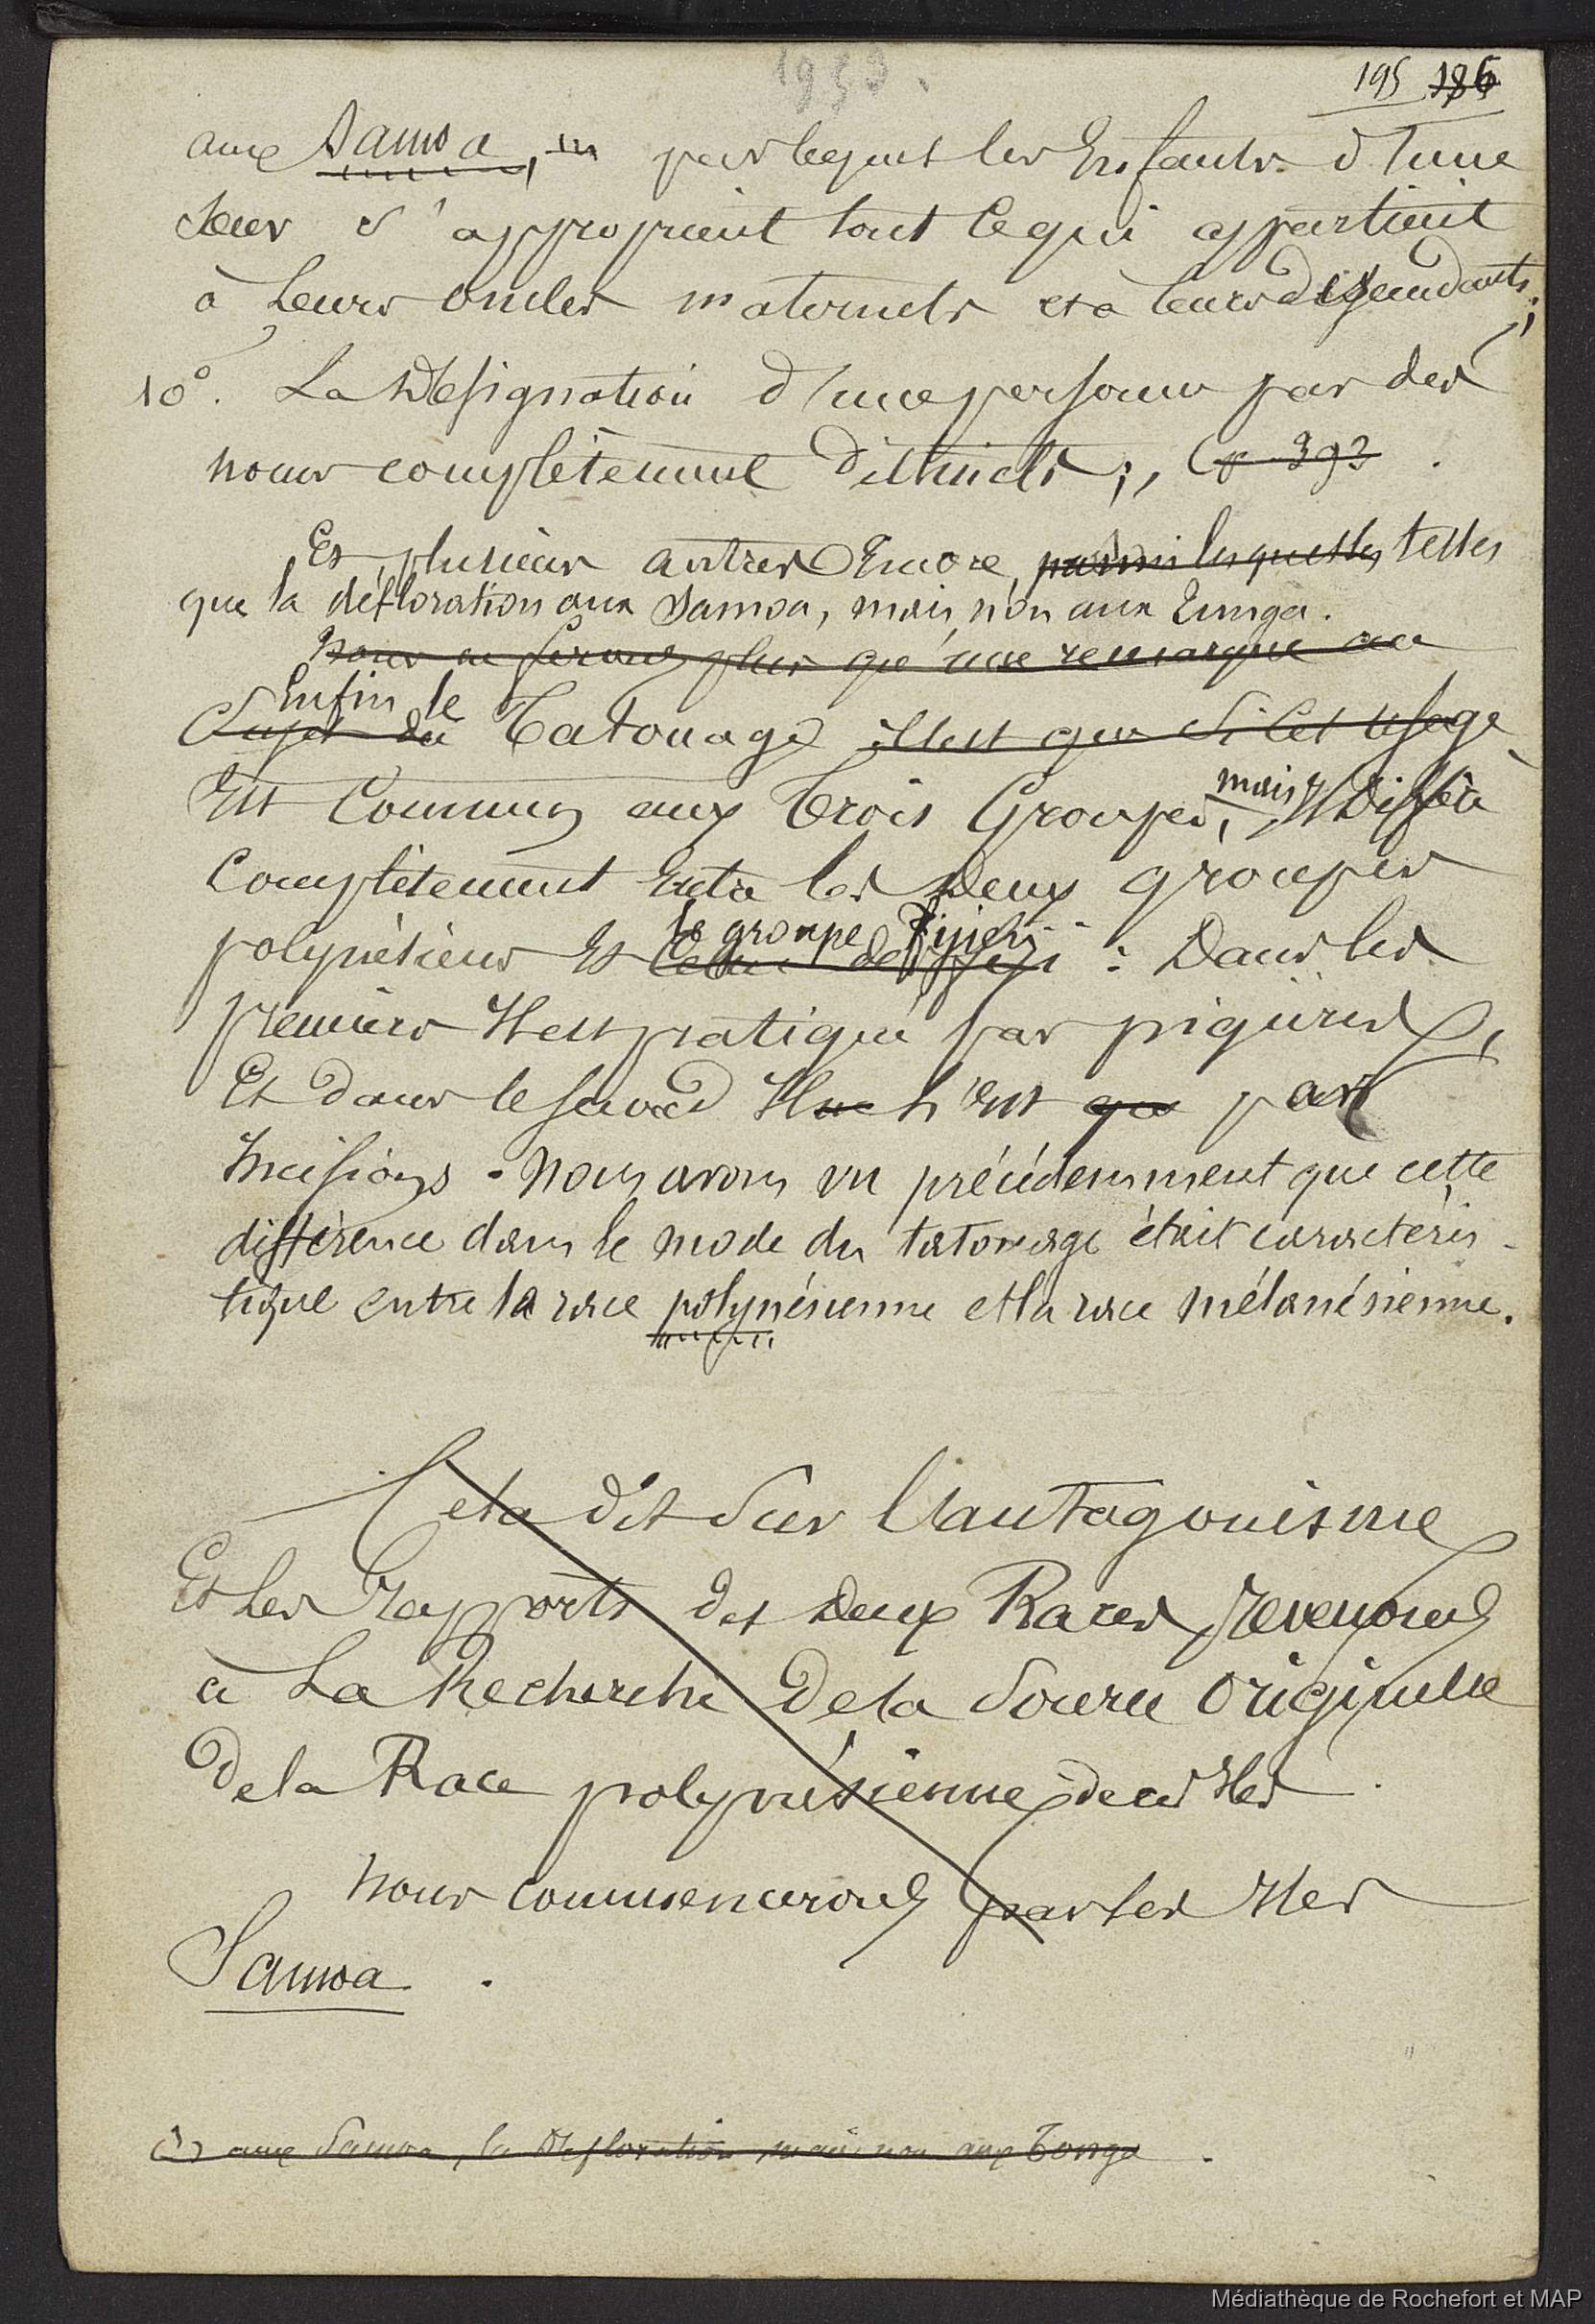 1953.
195 186
aux Samoa, in par lequel les Enfants d'une
Soeur s'approprient tout ce qui appartient
à leurs oncles maternels et à leurs descendants;
10°. La Désignation d'une personne par des
noms complètement distincts;, (p 393.
Et plusieurs autres Encore, parmi lesquelles telles
que la défloration aux Samoa, mais non aux Tunga.
Nous ne ferons plus qu'une remarque au
Enfin le
Sujet du Tatouage c'est que si cet usage
mais
Est Commun aux trois Groupes, Il Diffère
Complètement Entre les Deux groupes
le groupe Fijien
polynésiens Et Celui des Fiji : Dans les
premiers Il est pratiqué par piqûres,
Et dans le second Il ne l'est que par
Incisions. Nous avons vu précédemment que cette
différence dans le mode du tatouage était caractéris-
tique entre la race polynésienne et la race mélanésienne.
Cela dit sur l'antagonisme
Et les Rapports des Deux Races, revenons
à La Recherche De la Source Originelle
De la Race polynésienne de ces Iles.
Nous commencerons par les Iles
Samoa.
(1) aux Samoa, la Défloration mais non aux Tonga.
Médiathèque de Rochefort et MAP